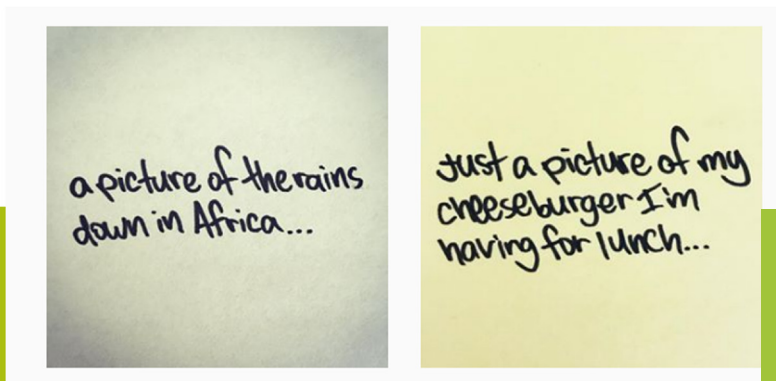 a picture of the rains
down in Africa...
Just a picture of my
cheeseburger I'm
having for lunch...